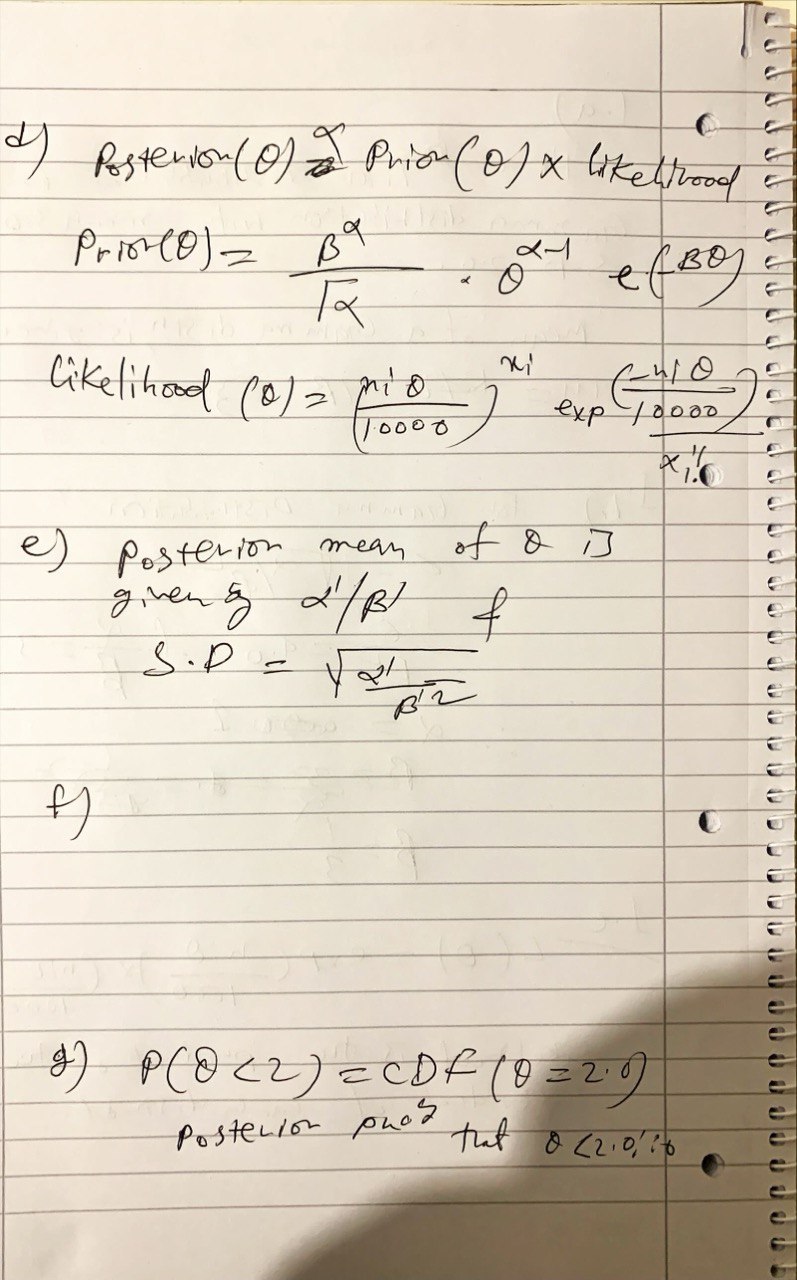 d) Posterior(θ) ∝ Prior(θ) x likelihood
Prior(θ) = β^α / Γα . θ^α-1 e(-βθ)
Likelihood (θ) = (niθ / 10000)^xi exp(-niθ / 10000) / xi!
e) Posterior mean of θ is
given by α'/β' f
S.D = √α' / β'2
f)
g) P(θ<2) = CDF(θ=2.0)
Posterior that θ<2.0, is